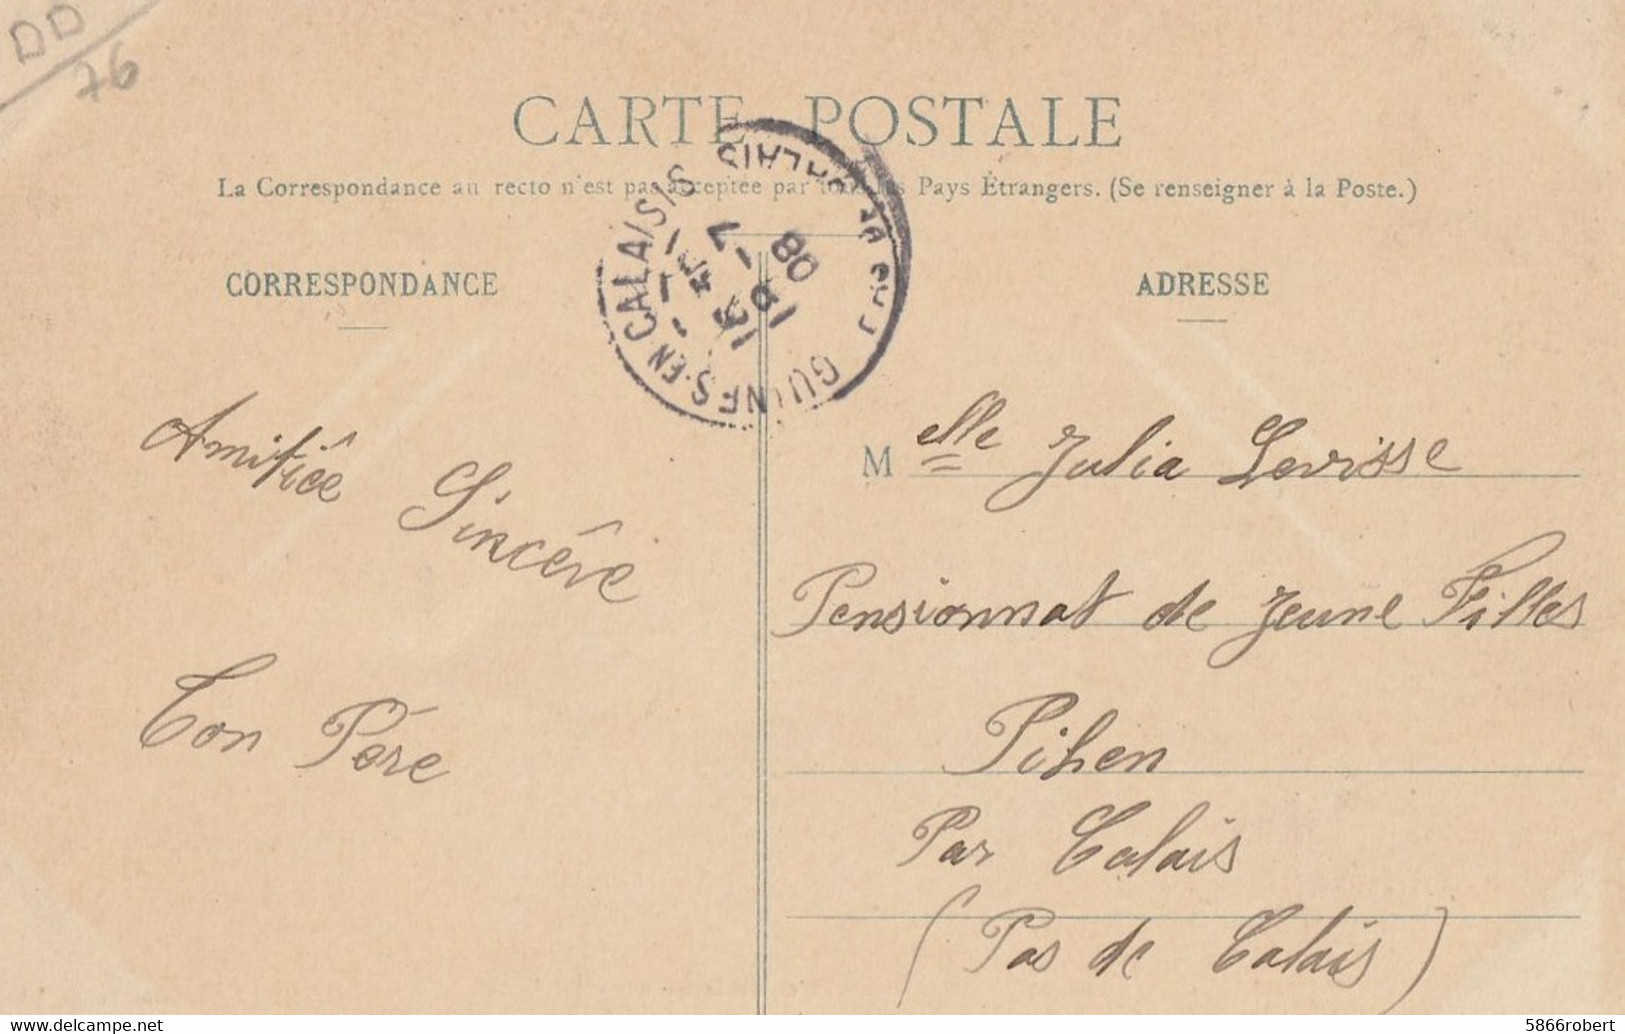 DD
76
CARTE POSTALE
La Correspondance au recto n'est pas acceptée par tous les Pays Étrangers. (Se renseigner à la Poste.)
CORRESPONDANCE
ADRESSE
GUINES-EN-CALAISIS
PAS DE CALAIS
7 -
08
Amitiée Sincére
Ton Pére
Melle Julia Levisse
Pensionnat de Jeune Filles
Pihen
Par Calais
(Pas de Calais)
www.delcampe.net
5866robert